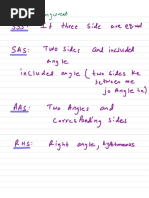 SSS: If three side are equal
SAS: Two sides and included
angle
included angle ( two sides ke
between me
jo Angle ho)
AAS: Two Angles and
corresponding sides
RHS: Right angle, hypotenuse